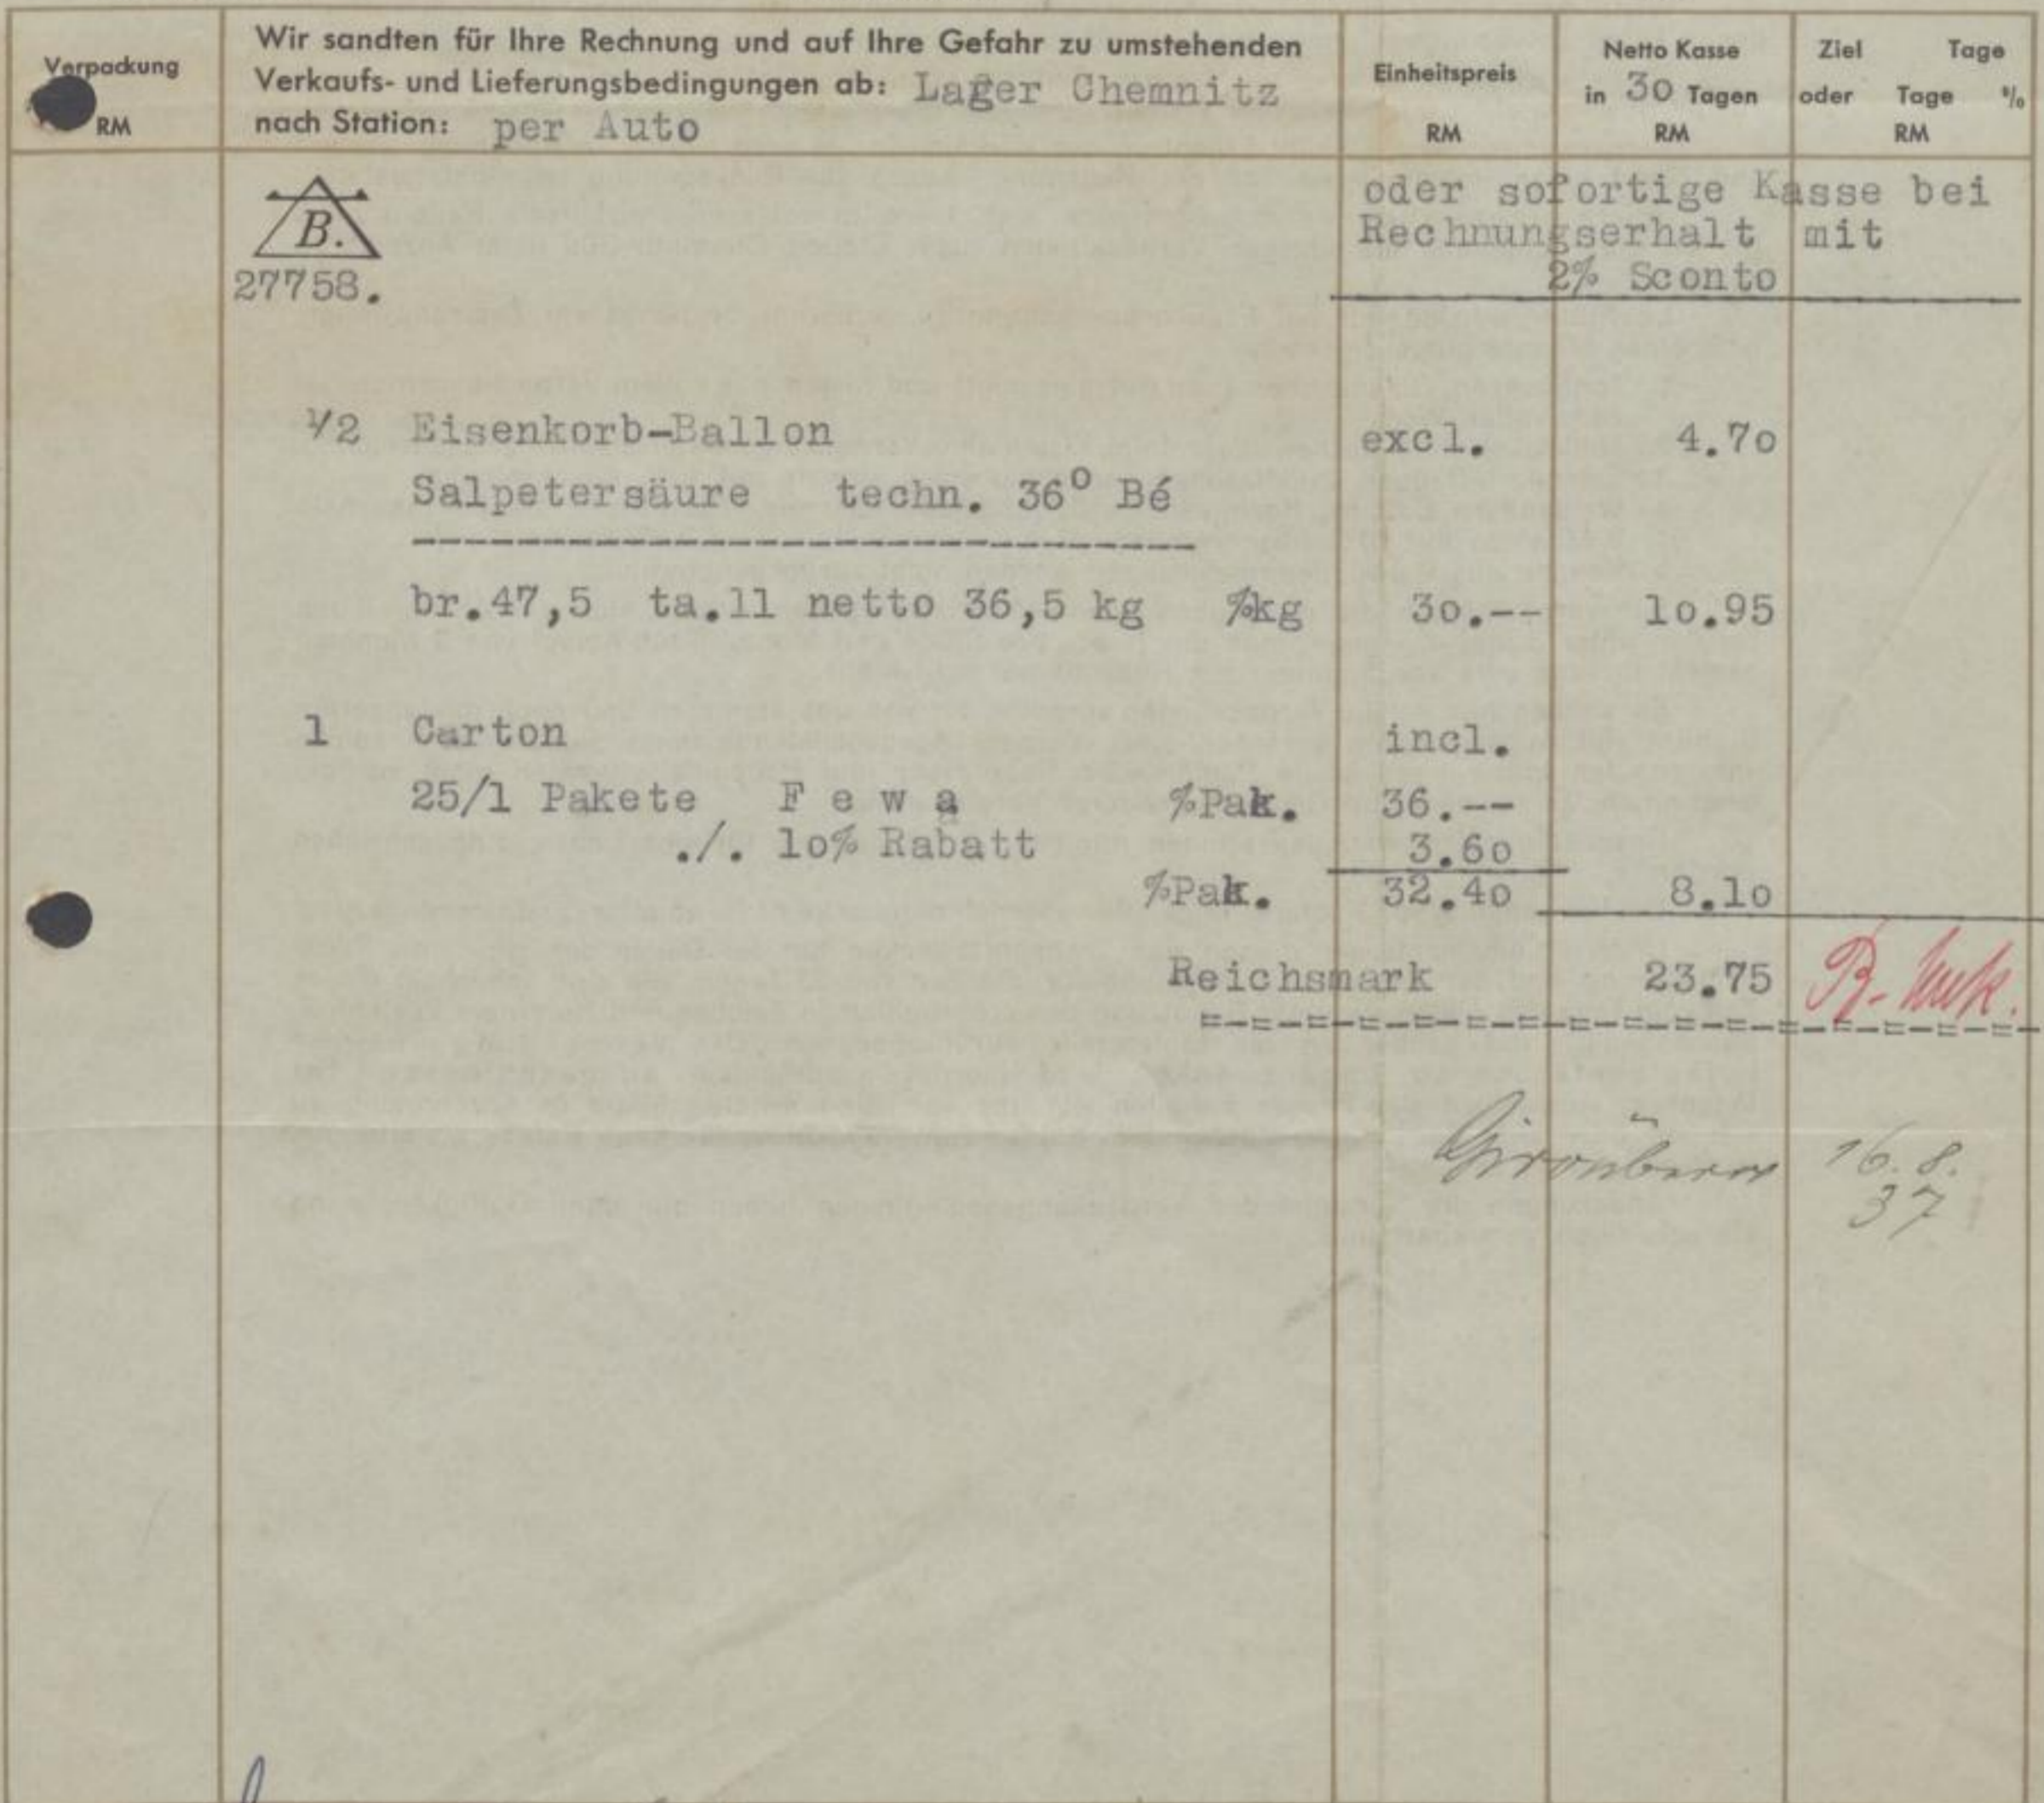 Verpackung
RM
Wir sandten für Ihre Rechnung und auf Ihre Gefahr zu umstehenden
Verkaufs- und Lieferungsbedingungen ab: Lager Chemnitz
nach Station: per Auto
Einheitspreis
RM
Netto Kasse
in 30 Tagen
RM
Ziel Tage
oder Tage %
RM
B.
27758.
oder sofortige Kasse bei
Rechnungserhalt mit
2% Sconto
1/2 Eisenkorb-Ballon excl. 4.70
Salpetersäure techn. 36° Bé
br.47,5 ta.11 netto 36,5 kg %kg 30.-- 10.95
1 Carton incl.
25/1 Pakete F e w a %Pak. 36.--
./. 10% Rabatt 3.60
%Pak. 32.40 8.10
Reichsmark 23.75
16.8.
37